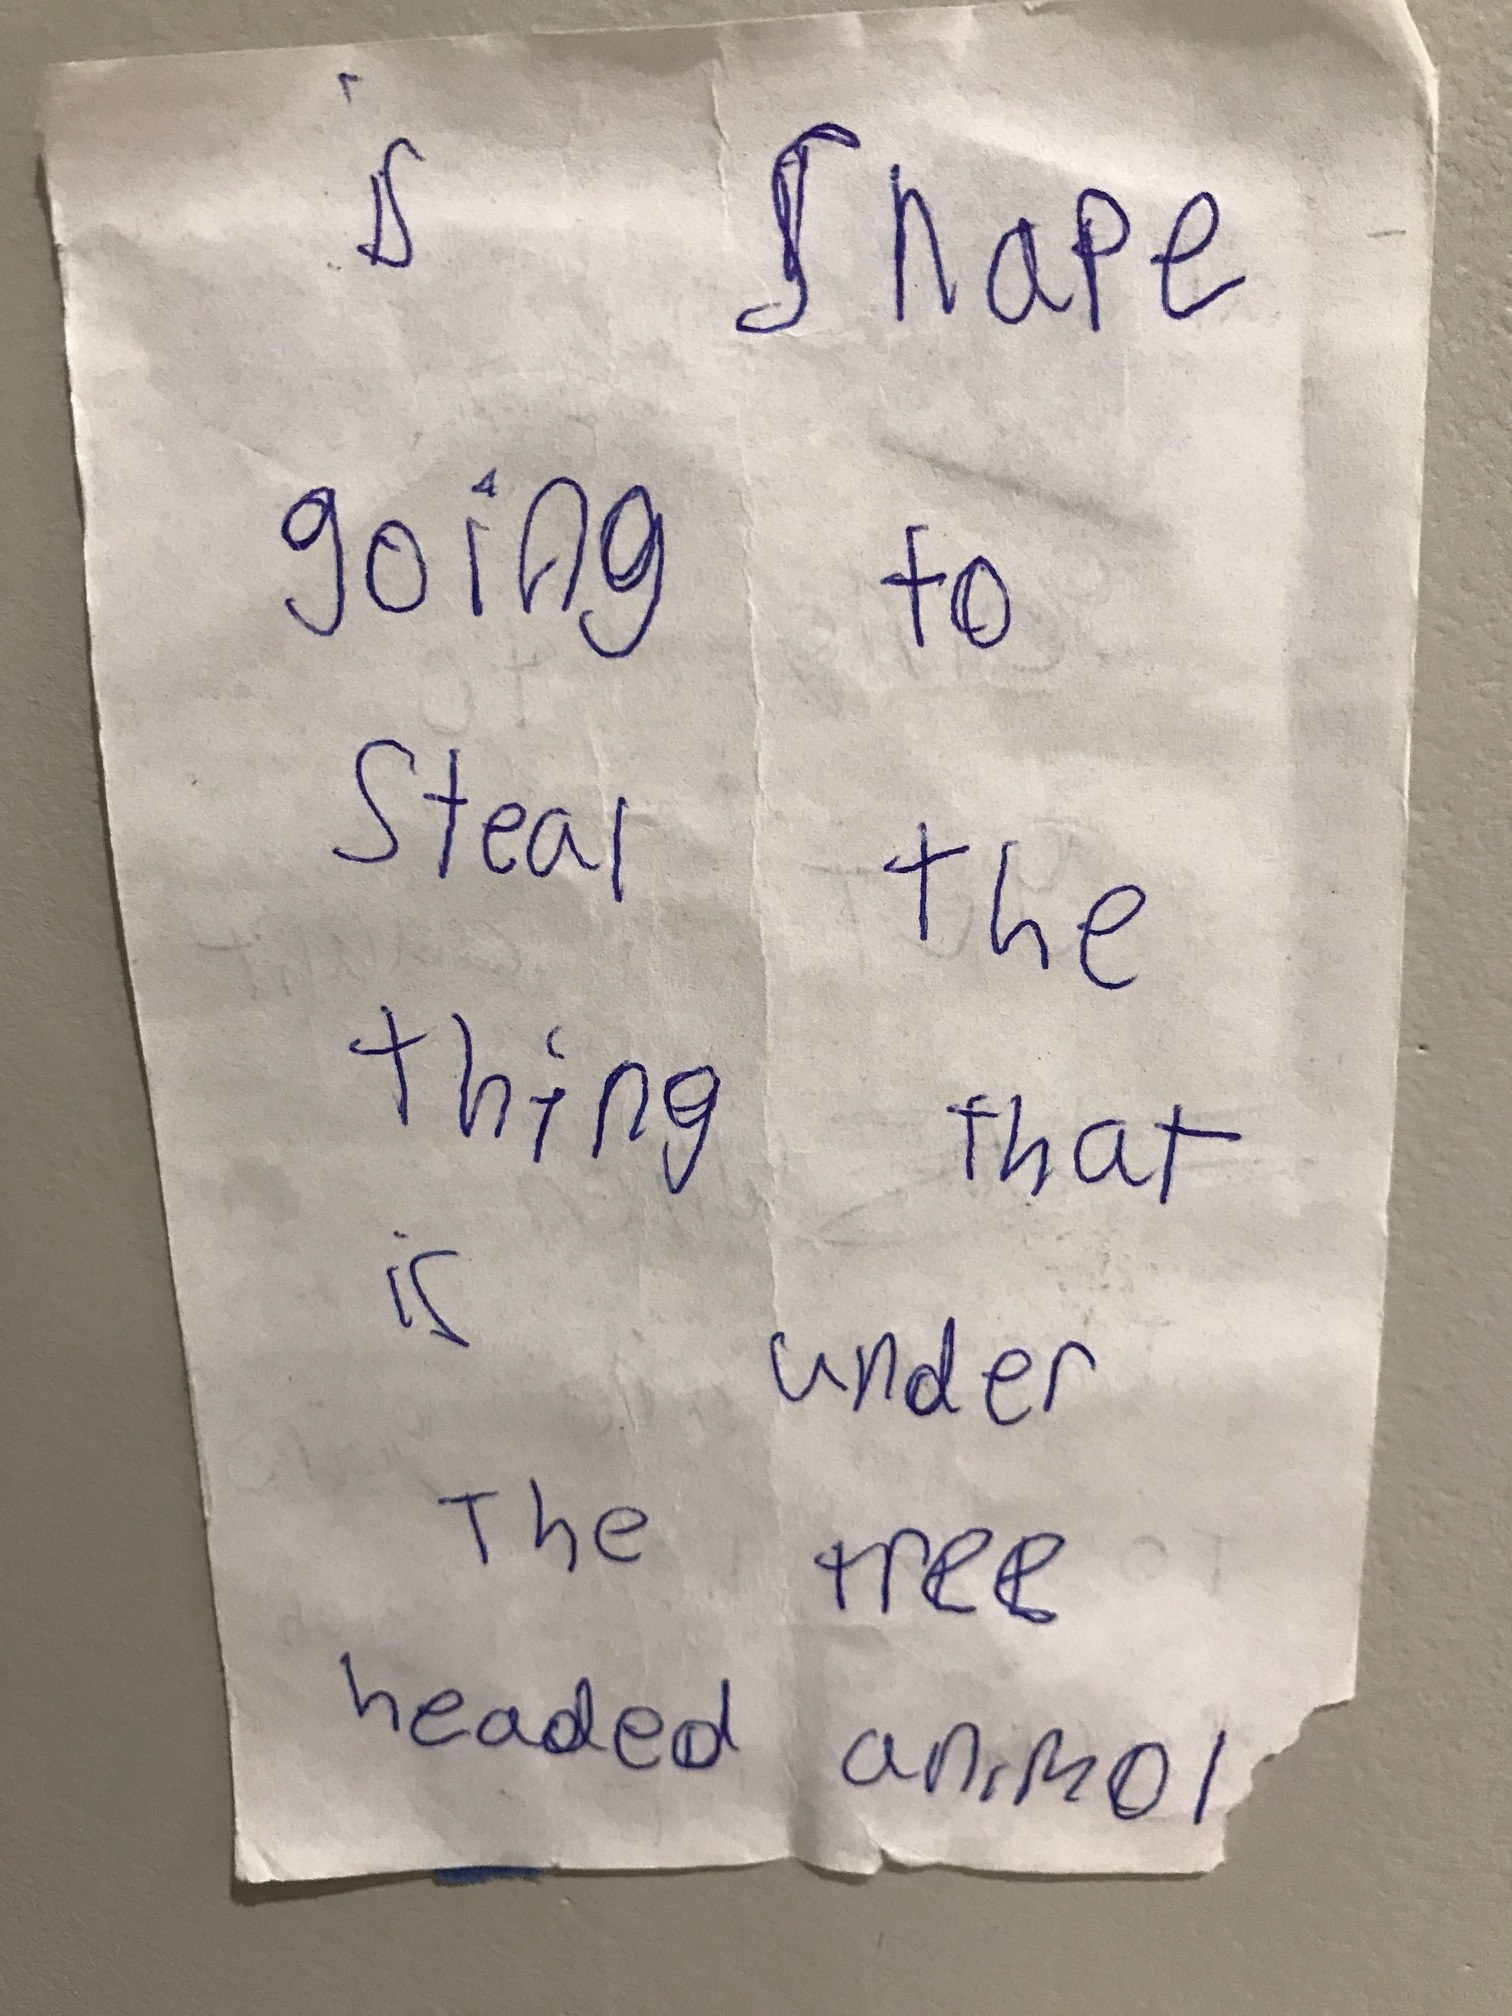 is Shape
going to
Steal the
thing that
is under
The tree
headed animol